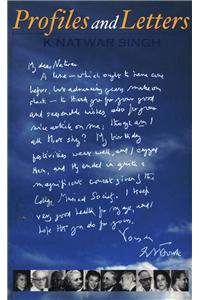 Profiles and Letters
K NATWAR SINGH
My dear Natwar
A line – which ought to have come
before, but advancing years make me
slack – to thank you for your good
and reasonable wishes, also for your
nice article on me; though am I
all that shy? My birthday
festivities went well, and I enjoyed
them, and they ended in quite a
magnificent concert given by the
College Musical Society. I keep
very good health for my age, and
hope that you do for yours.